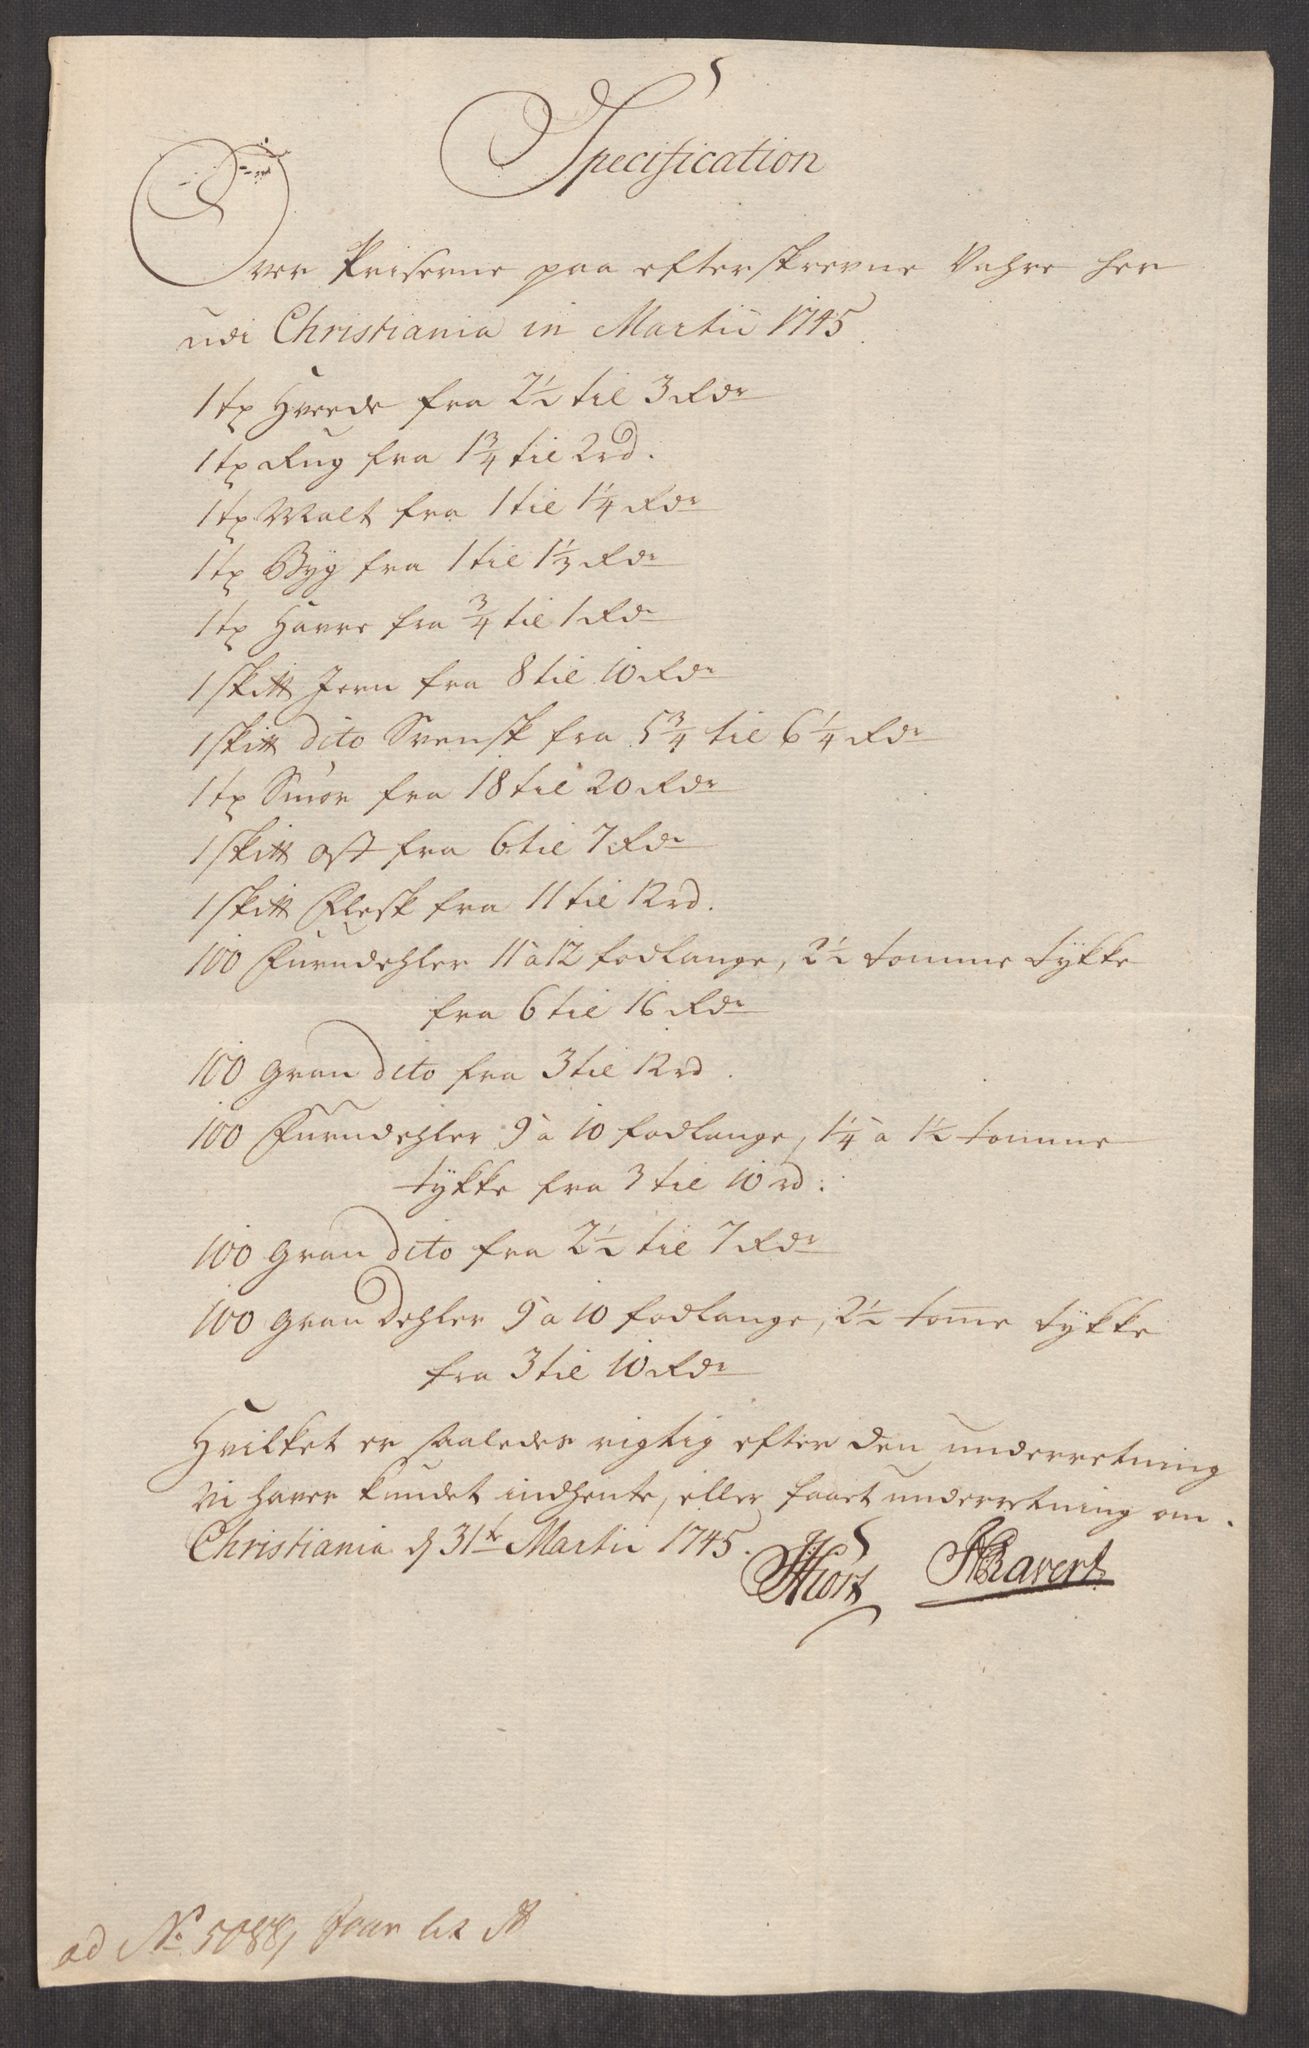 Specification
Over Priserne paa efterskrevne Vahre her
udi Christiania in Martii 1745.
1 tp Hvede fra 2½ til 3 Rdr
1 tp Rug fra 1¾ til 2 rd.
1 tp Malt fra 1 til 1¼ Rdr
1 tp Byg fra 1 til 1⅓ Rdr
1 tp Havre fra ¾ til 1 Rdr
1 sk℔ Jern fra 8 til 10 Rdr
1 sk℔ dito Svensk fra 5¾ til 6¼ Rdr
1 tp Smør fra 18 til 20 Rdr
1 sk℔ Ost fra 6 til 7 Rdr
1 sk℔ Flesk fra 11 til 12 rd.
100 Furudehler 11 a 12 fodlange, 2½ tomme tykke
fra 6 til 16 Rdr
100 Gran dito fra 3 til 12 rd.
100 Furudehler 9 a 10 fodlange, 1¼ a 1½ tomme
tykke fra 3 til 10 rd.
100 Gran dito fra 2½ til 7 Rdr
100 Gran Dehler 9 a 10 fodlange, 2½ tome tykke
fra 3 til 10 Rdr
Hvilket er saaledes rigtig efter den underretning
vi haver kundet indhente, eller faaet underretning om.
Christiania d 31te Martii 1745.
Hiort Ravert
ad No 5088